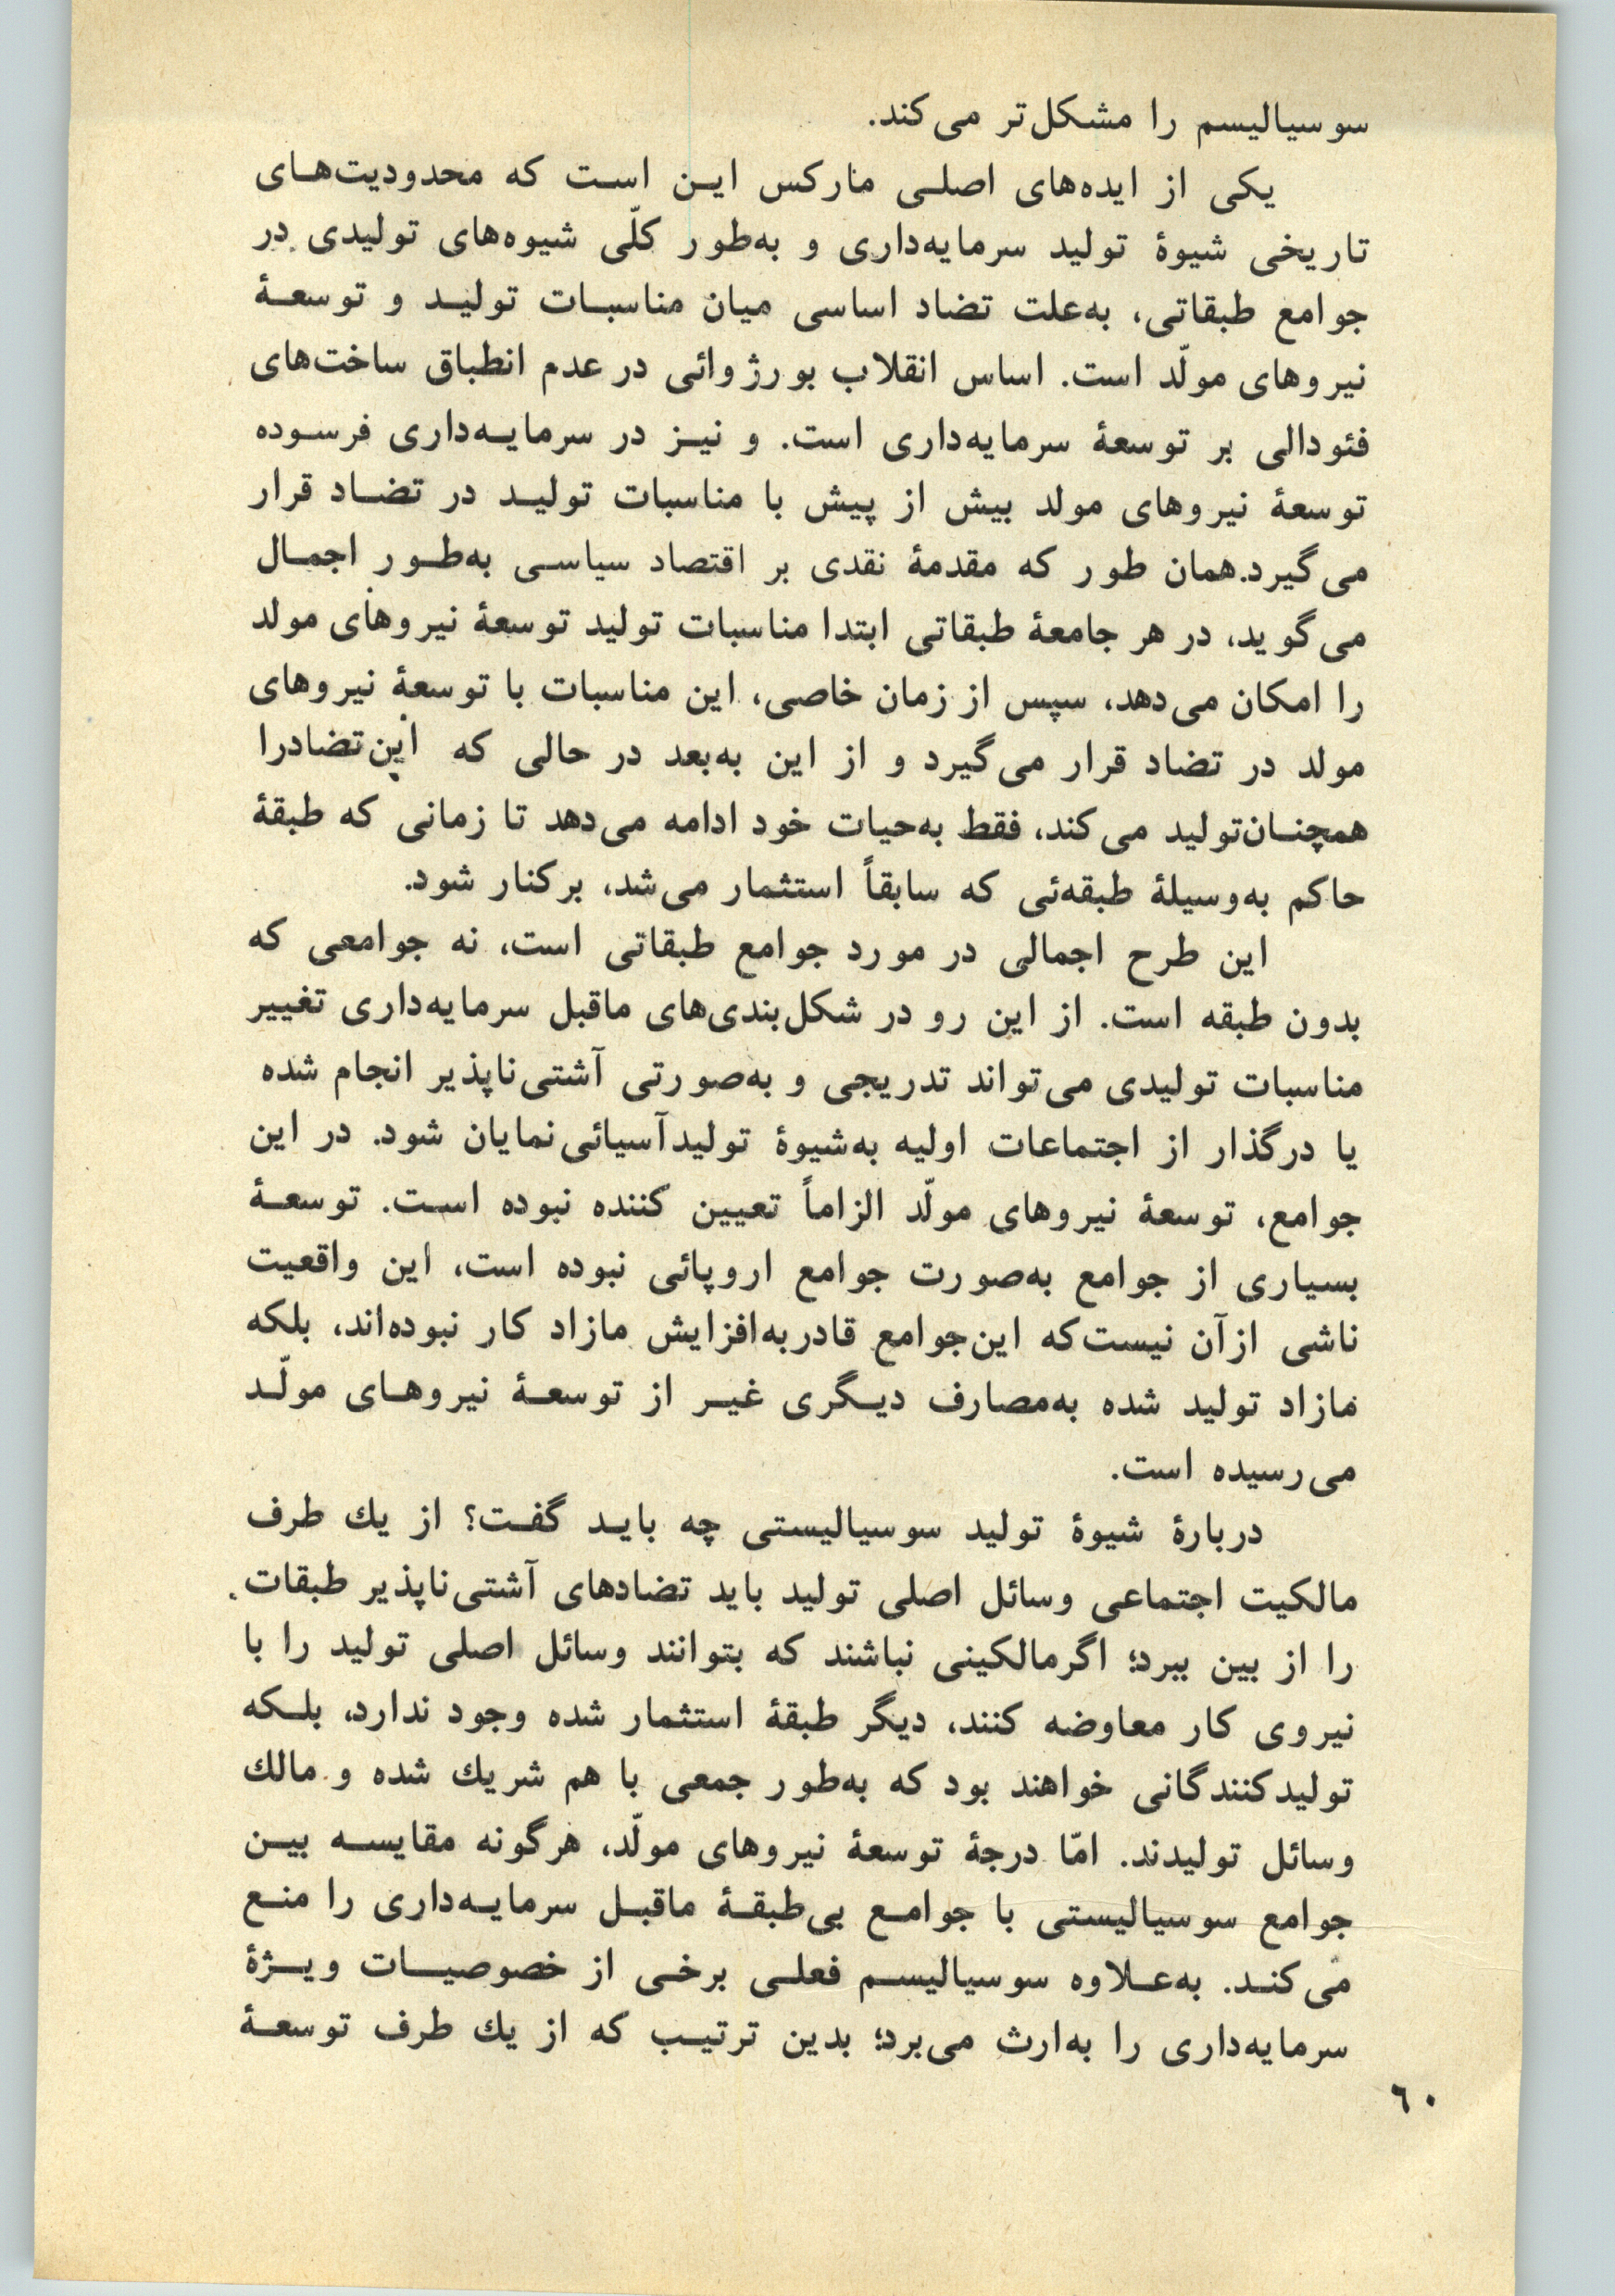 سوسیالیسم را مشکل‌تر می‌کند.
یکی از ایده‌های اصلی مارکس این است که محدودیت‌های
تاریخی شیوهٔ تولید سرمایه‌داری و به‌طور کلّی شیوه‌های تولیدی در
جوامع طبقاتی، به‌علت تضاد اساسی میان مناسبات تولید و توسعهٔ
نیروهای مولّد است. اساس انقلاب بورژوائی در عدم انطباق ساخت‌های
فئودالی بر توسعهٔ سرمایه‌داری است. و نیز در سرمایه‌داری فرسوده
توسعهٔ نیروهای مولد بیش از پیش با مناسبات تولید در تضاد قرار
می‌گیرد. همان طور که مقدمهٔ نقدی بر اقتصاد سیاسی به‌طور اجمال
می‌گوید، در هر جامعهٔ طبقاتی ابتدا مناسبات تولید توسعهٔ نیروهای مولد
را امکان می‌دهد، سپس از زمان خاصی، این مناسبات با توسعهٔ نیروهای
مولد در تضاد قرار می‌گیرد و از این به‌بعد در حالی که این تضادرا
همچنان‌تولید می‌کند، فقط به‌حیات خود ادامه می‌دهد تا زمانی که طبقهٔ
حاکم به‌وسیلهٔ طبقه‌ئی که سابقاً استثمار می‌شد، برکنار شود.
این طرح اجمالی در مورد جوامع طبقاتی است، نه جوامعی که
بدون طبقه است. از این رو در شکل‌بندی‌های ماقبل سرمایه‌داری تغییر
مناسبات تولیدی می‌تواند تدریجی و به‌صورتی آشتی‌ناپذیر انجام شده
یا درگذار از اجتماعات اولیه به‌شیوهٔ تولیدآسیائی‌نمایان شود. در این
جوامع، توسعهٔ نیروهای مولّد الزاماً تعیین کننده نبوده است. توسعهٔ
بسیاری از جوامع به‌صورت جوامع اروپائی نبوده است، این واقعیت
ناشی ازآن نیست‌که این‌جوامع قادربه‌افزایش مازاد کار نبوده‌اند، بلکه
مازاد تولید شده به‌مصارف دیگری غیر از توسعهٔ نیروهای مولّد
می‌رسیده است.
دربارهٔ شیوهٔ تولید سوسیالیستی چه باید گفت؟ از یك طرف
مالکیت اجتماعی وسائل اصلی تولید باید تضادهای آشتی‌ناپذیر طبقات
را از بین ببرد؛ اگرمالکینی نباشند که بتوانند وسائل اصلی تولید را با
نیروی کار معاوضه کنند، دیگر طبقهٔ استثمار شده وجود ندارد، بلکه
تولیدکنندگانی خواهند بود که به‌طور جمعی با هم شریك شده و مالك
وسائل تولیدند. امّا درجهٔ توسعهٔ نیروهای مولّد، هرگونه مقایسه بین
جوامع سوسیالیستی با جوامع بی‌طبقهٔ ماقبل سرمایه‌داری را منع
می‌کند. به‌علاوه سوسیالیسم فعلی برخی از خصوصیات ویژهٔ
سرمایه‌داری را به‌ارث می‌برد؛ بدین ترتیب که از یك طرف توسعهٔ
٦٠